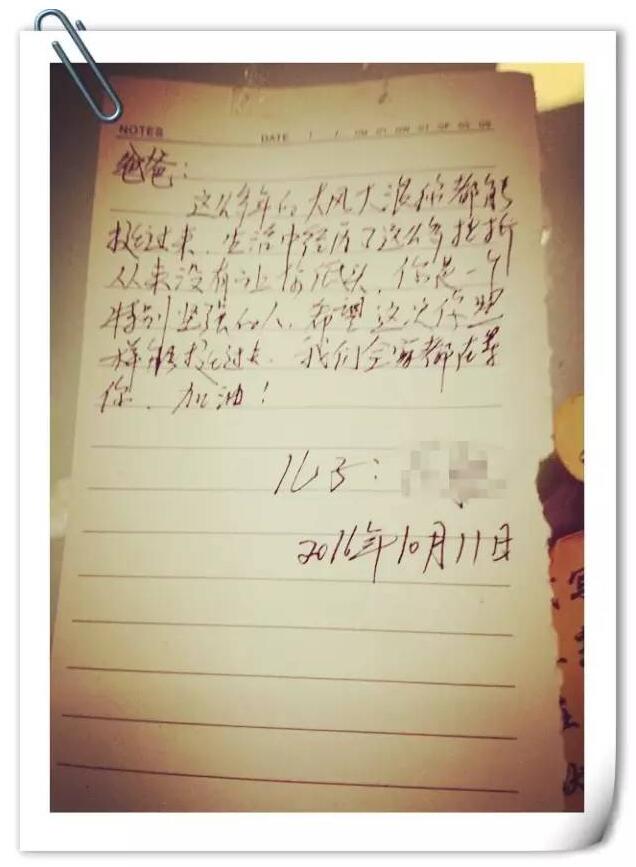 NOTES DATE / /
爸爸：
这么多年的大风大浪你都能
挺过来，生活中经历了这么多挫折
从来没有让你低头，你是一个
特别坚强的人，希望这次你照
样能挺过去，我们全家都在等
你，加油！
儿子：
2016年10月11日